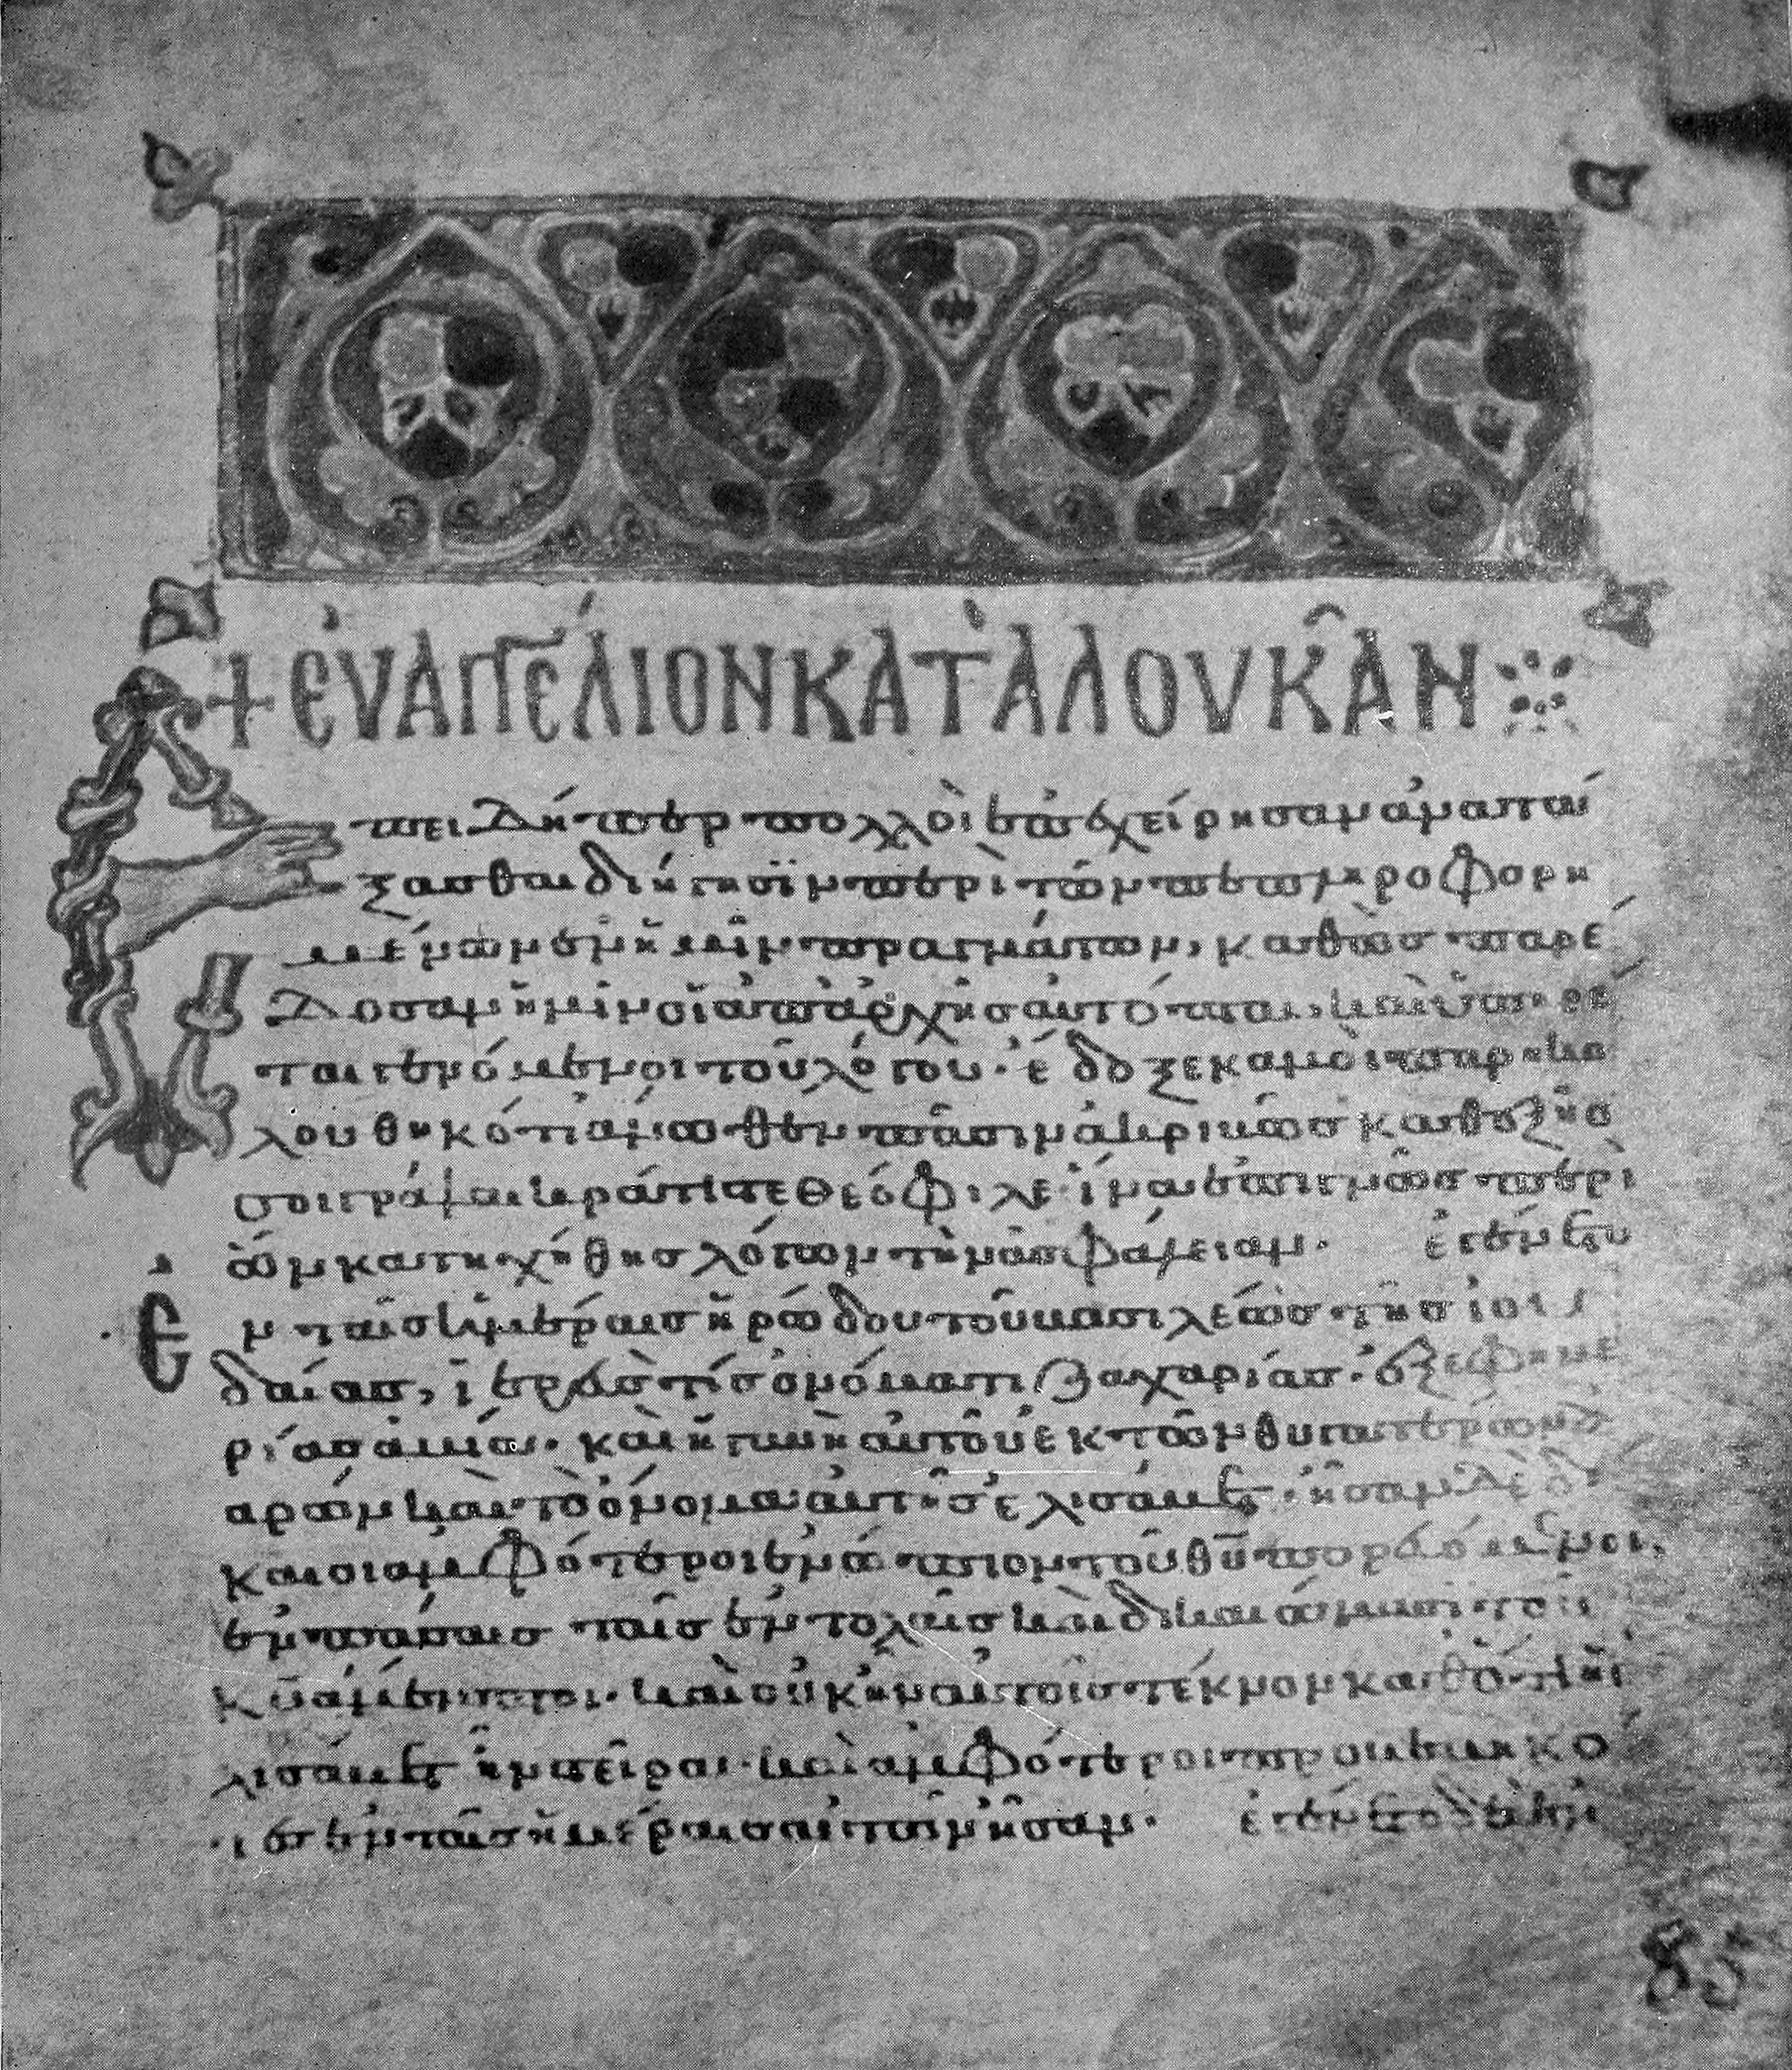 + ἐυαγγέλιον κατὰ λουκᾶν
Ἐπειδήπερ πολλοὶ ἐπεχείρησαν ἀνατα
ξασθαι διήγησϊν περὶ τῶν πεπληροφορη
μένων ἐν ἡμῖν πραγμάτων, καθὼς παρέ
δοσαν ἡμῖν οἱ ἀπαρχῆς αὐτόπται, καὶ ὑπηρέ
ται γενόμενοι τοῦ λόγου· ἔδοξε κἀμοὶ παρηκο
λουθηκότι ἄνωθεν πᾶσιν ἀκριβῶς καθεξῆς
σοι γράψαι κράτιστε θεόφιλε· ἵνα ἐπιγνῶς περὶ
ὧν κατηχήθης λόγων τὴν ἀσφάλειαν· ἐγένετο
ἐν ταῖς ἡμέραις ἡρώδου τοῦ βασιλέως τῆς ἰου
δαίας, ἱερεύς τίς ὀνόματι ζαχαρίας· ἐξ ἐφημε
ρίας ἀβιά· καὶ ἡ γυνὴ αὐτοῦ ἐκ τῶν θυγατέρων
ἀρών καὶ τὸ ὄνομα αὐτῆς ἐλισάβετ· ἦσαν δὲ δί
καιοι ἀμφότεροι ἐνώπιον τοῦ θῦ πορευόμενοι,
ἐν πάσαις ταῖς ἐντολαῖς καὶ δικαιώμασι τοῦ
κῦ ἄμεμπτοι· καὶ οὐκ ἦν αὐτοῖς τέκνον καθότι ἡ ἐ
λισάβετ ἦν στεῖρα· καὶ ἀμφότεροι προβεβηκό
τες ἐν ταῖς ἡμέραις αὐτῶν ἦσαν· ἐγένετο δὲ ἐν
85